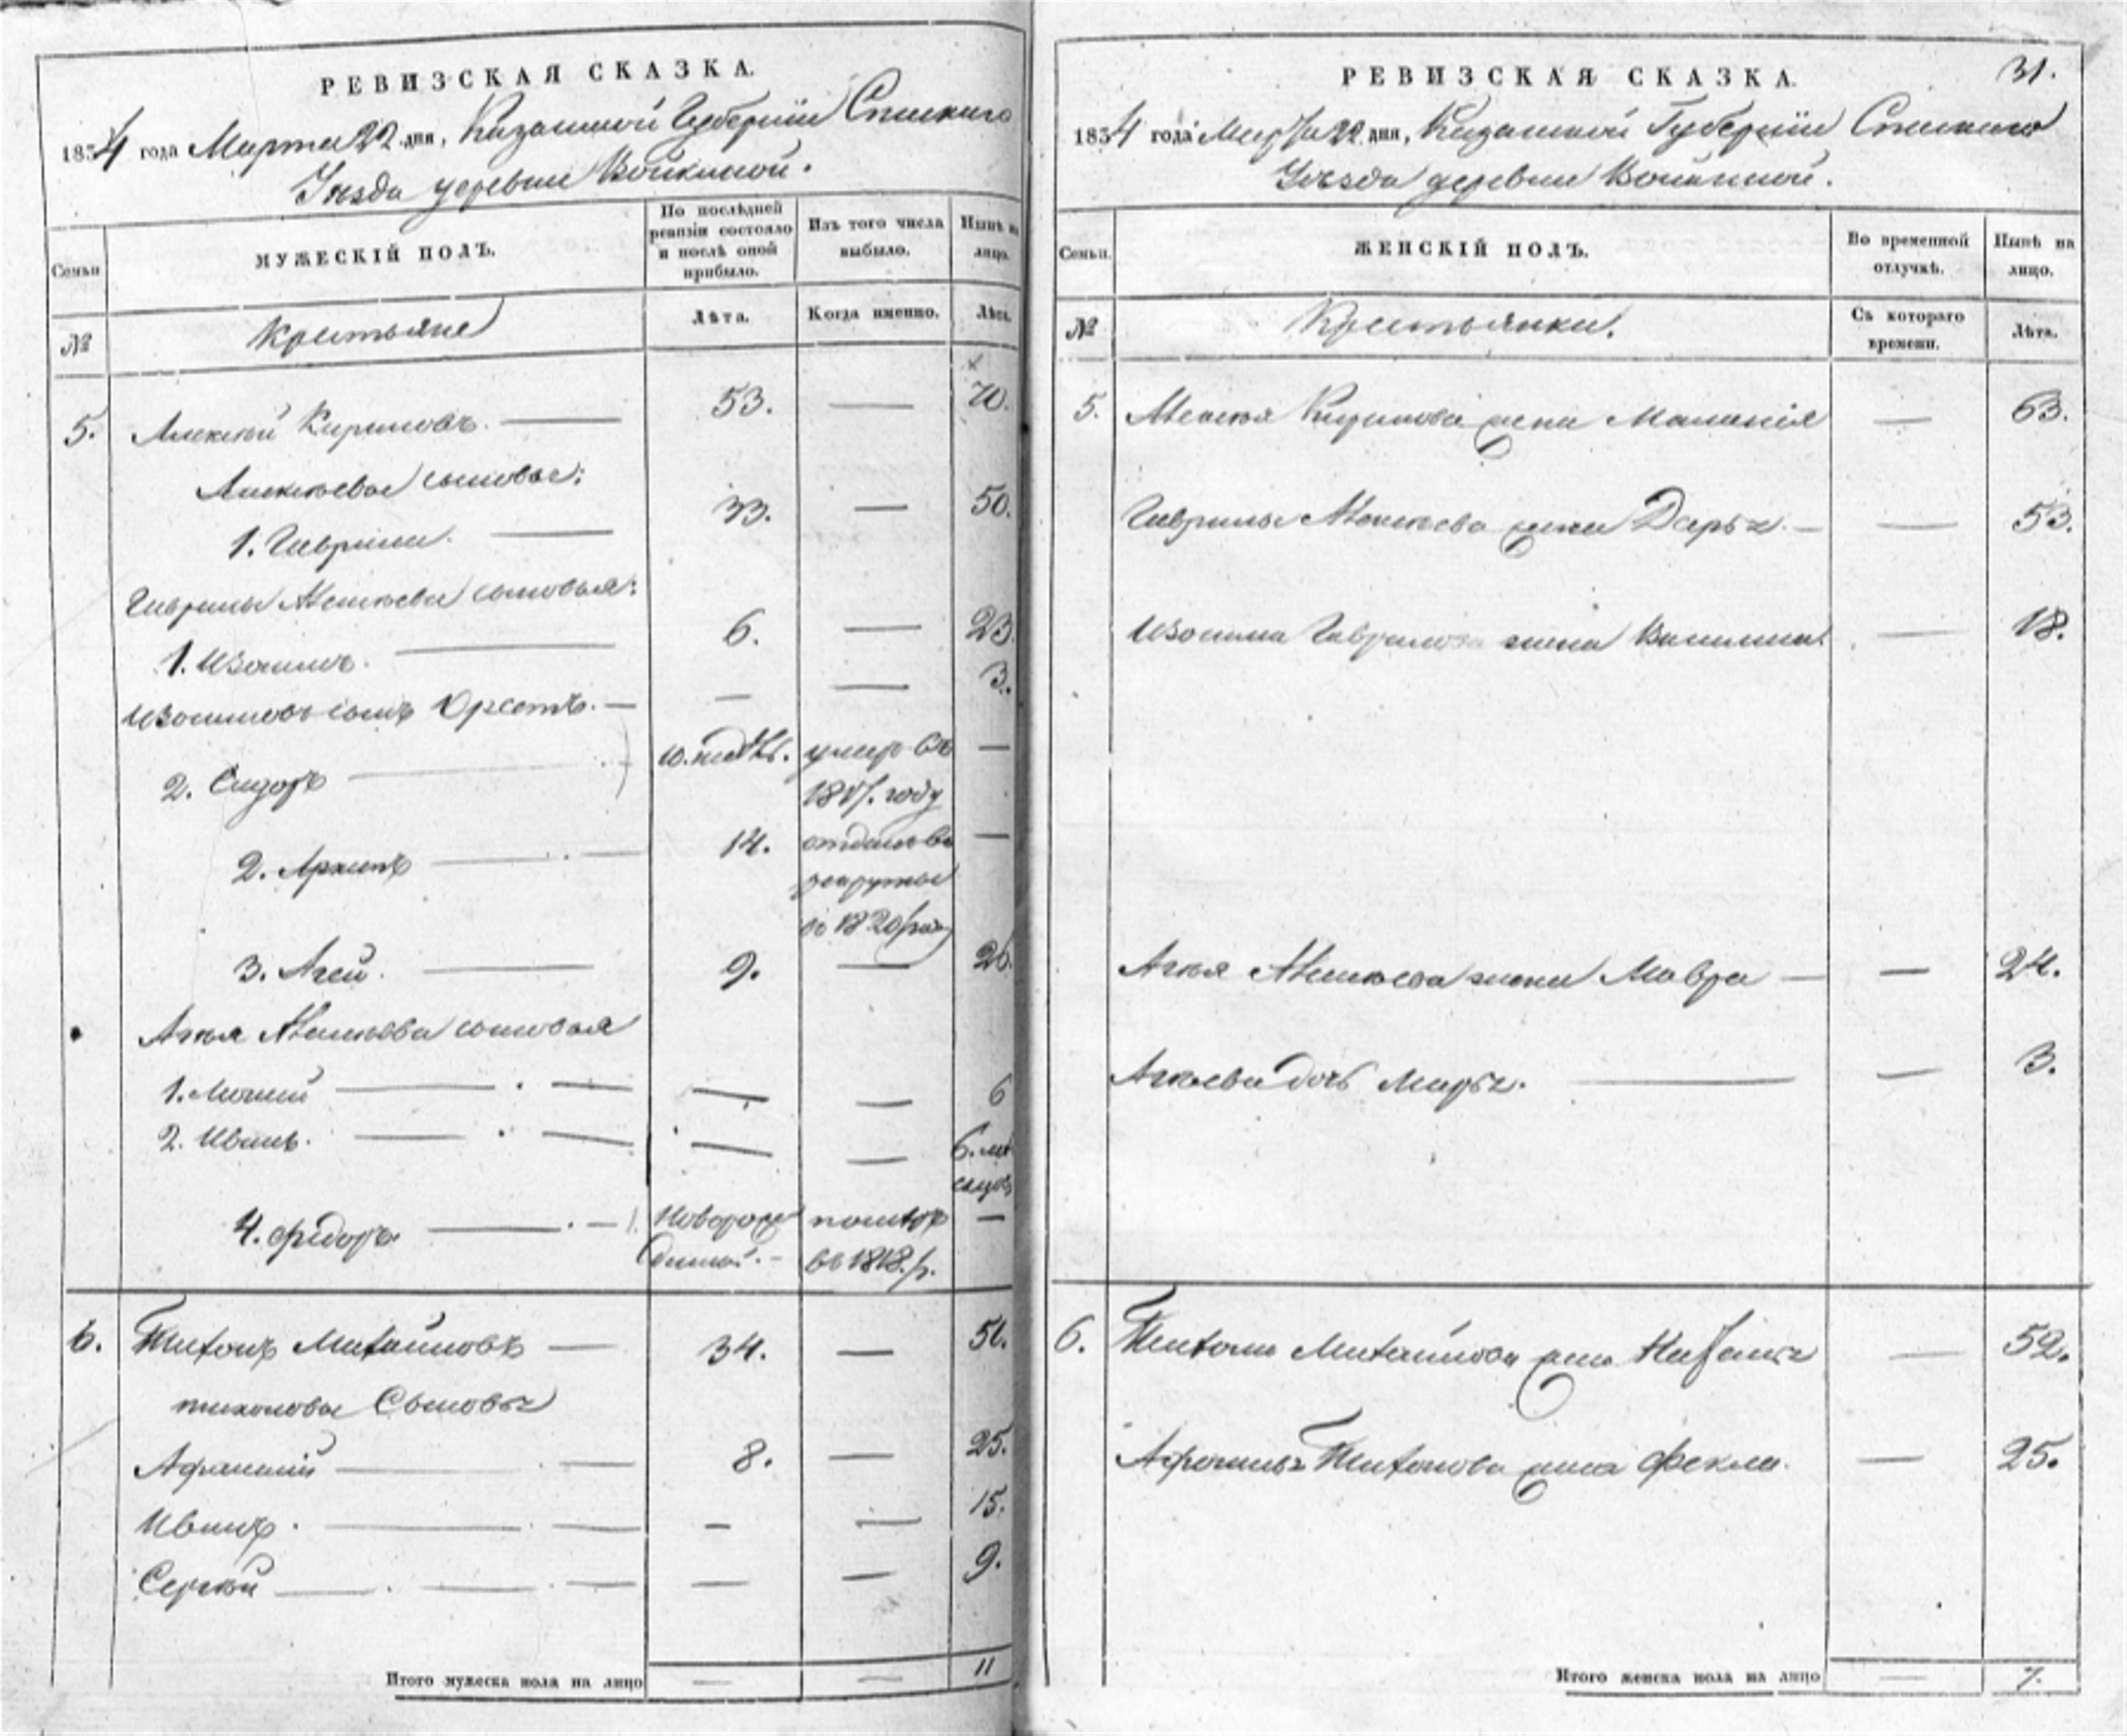 РЕВИЗСКАЯ СКАЗКА.
1834 года Марта 22 дня, Казанской Губернiи Спаскаго
Уѣзда деревни Войкиной.
Семьи
МУЖЕСКIЙ ПОЛЪ.
По послѣдней ревизiи состояло и послѣ оной прибыло.
Изъ того числа выбыло.
Нынѣ на лицо.
№
Крестьяне
Лѣта.
Когда именно.
Лѣта.
5. Алексѣй Кириловъ. — 53. — 70.
Алексѣевы сыновья:
1. Гаврила. — 33. — 50.
Гаврилы Алексѣева сыновья:
1. Изосимъ. — 6. — 23.
Изосимовъ сынъ Орестъ. — — — 3.
2. Сидоръ — 10. недѣль. умеръ въ —
1817. году
2. Архипъ — 14. отданъ въ —
рекруты
в 1820 году
3. Агей. — 9. — 26.
Агѣя Алексѣева сыновья
1. Мокий — — — 6
2. Иванъ. — — — 6. мѣ
сяцов
4. Фёдоръ. — Новорож помѣр —
денной. — въ 1818. г.
6. Тихонъ Михайловъ — 34. — 51.
тихоновы Сыновья
Афанасий — 8. — 25.
Иванъ. — — — 15.
Сергѣй — — — 9.
Итого мужеска пола на лицо — — 11
31.
РЕВИЗСКАЯ СКАЗКА.
1834 года Марта 22 дня, Казанской Губернiи Спаскаго
Уѣзда деревни Войкиной.
Семьи.
ЖЕНСКIЙ ПОЛЪ.
Во временной отлучкѣ.
Нынѣ на лицо.
№
Крестьянки.
Съ котораго времени.
Лѣта.
5. Алексѣя Кирилова жена Маланiя — 63.
Гаврилы Алексѣева жена Дарья. — — 53.
Изосима Гаврилова жена Василиса. — 18.
Агѣя Алексѣева жена Мавра — — 24.
Агѣева дочь Марья. — — 3.
6. Тихона Михайлова жена Наталья — 52.
Афонасья Тихонова жена Фекла. — 25.
Итого женска пола на лицо — 7.